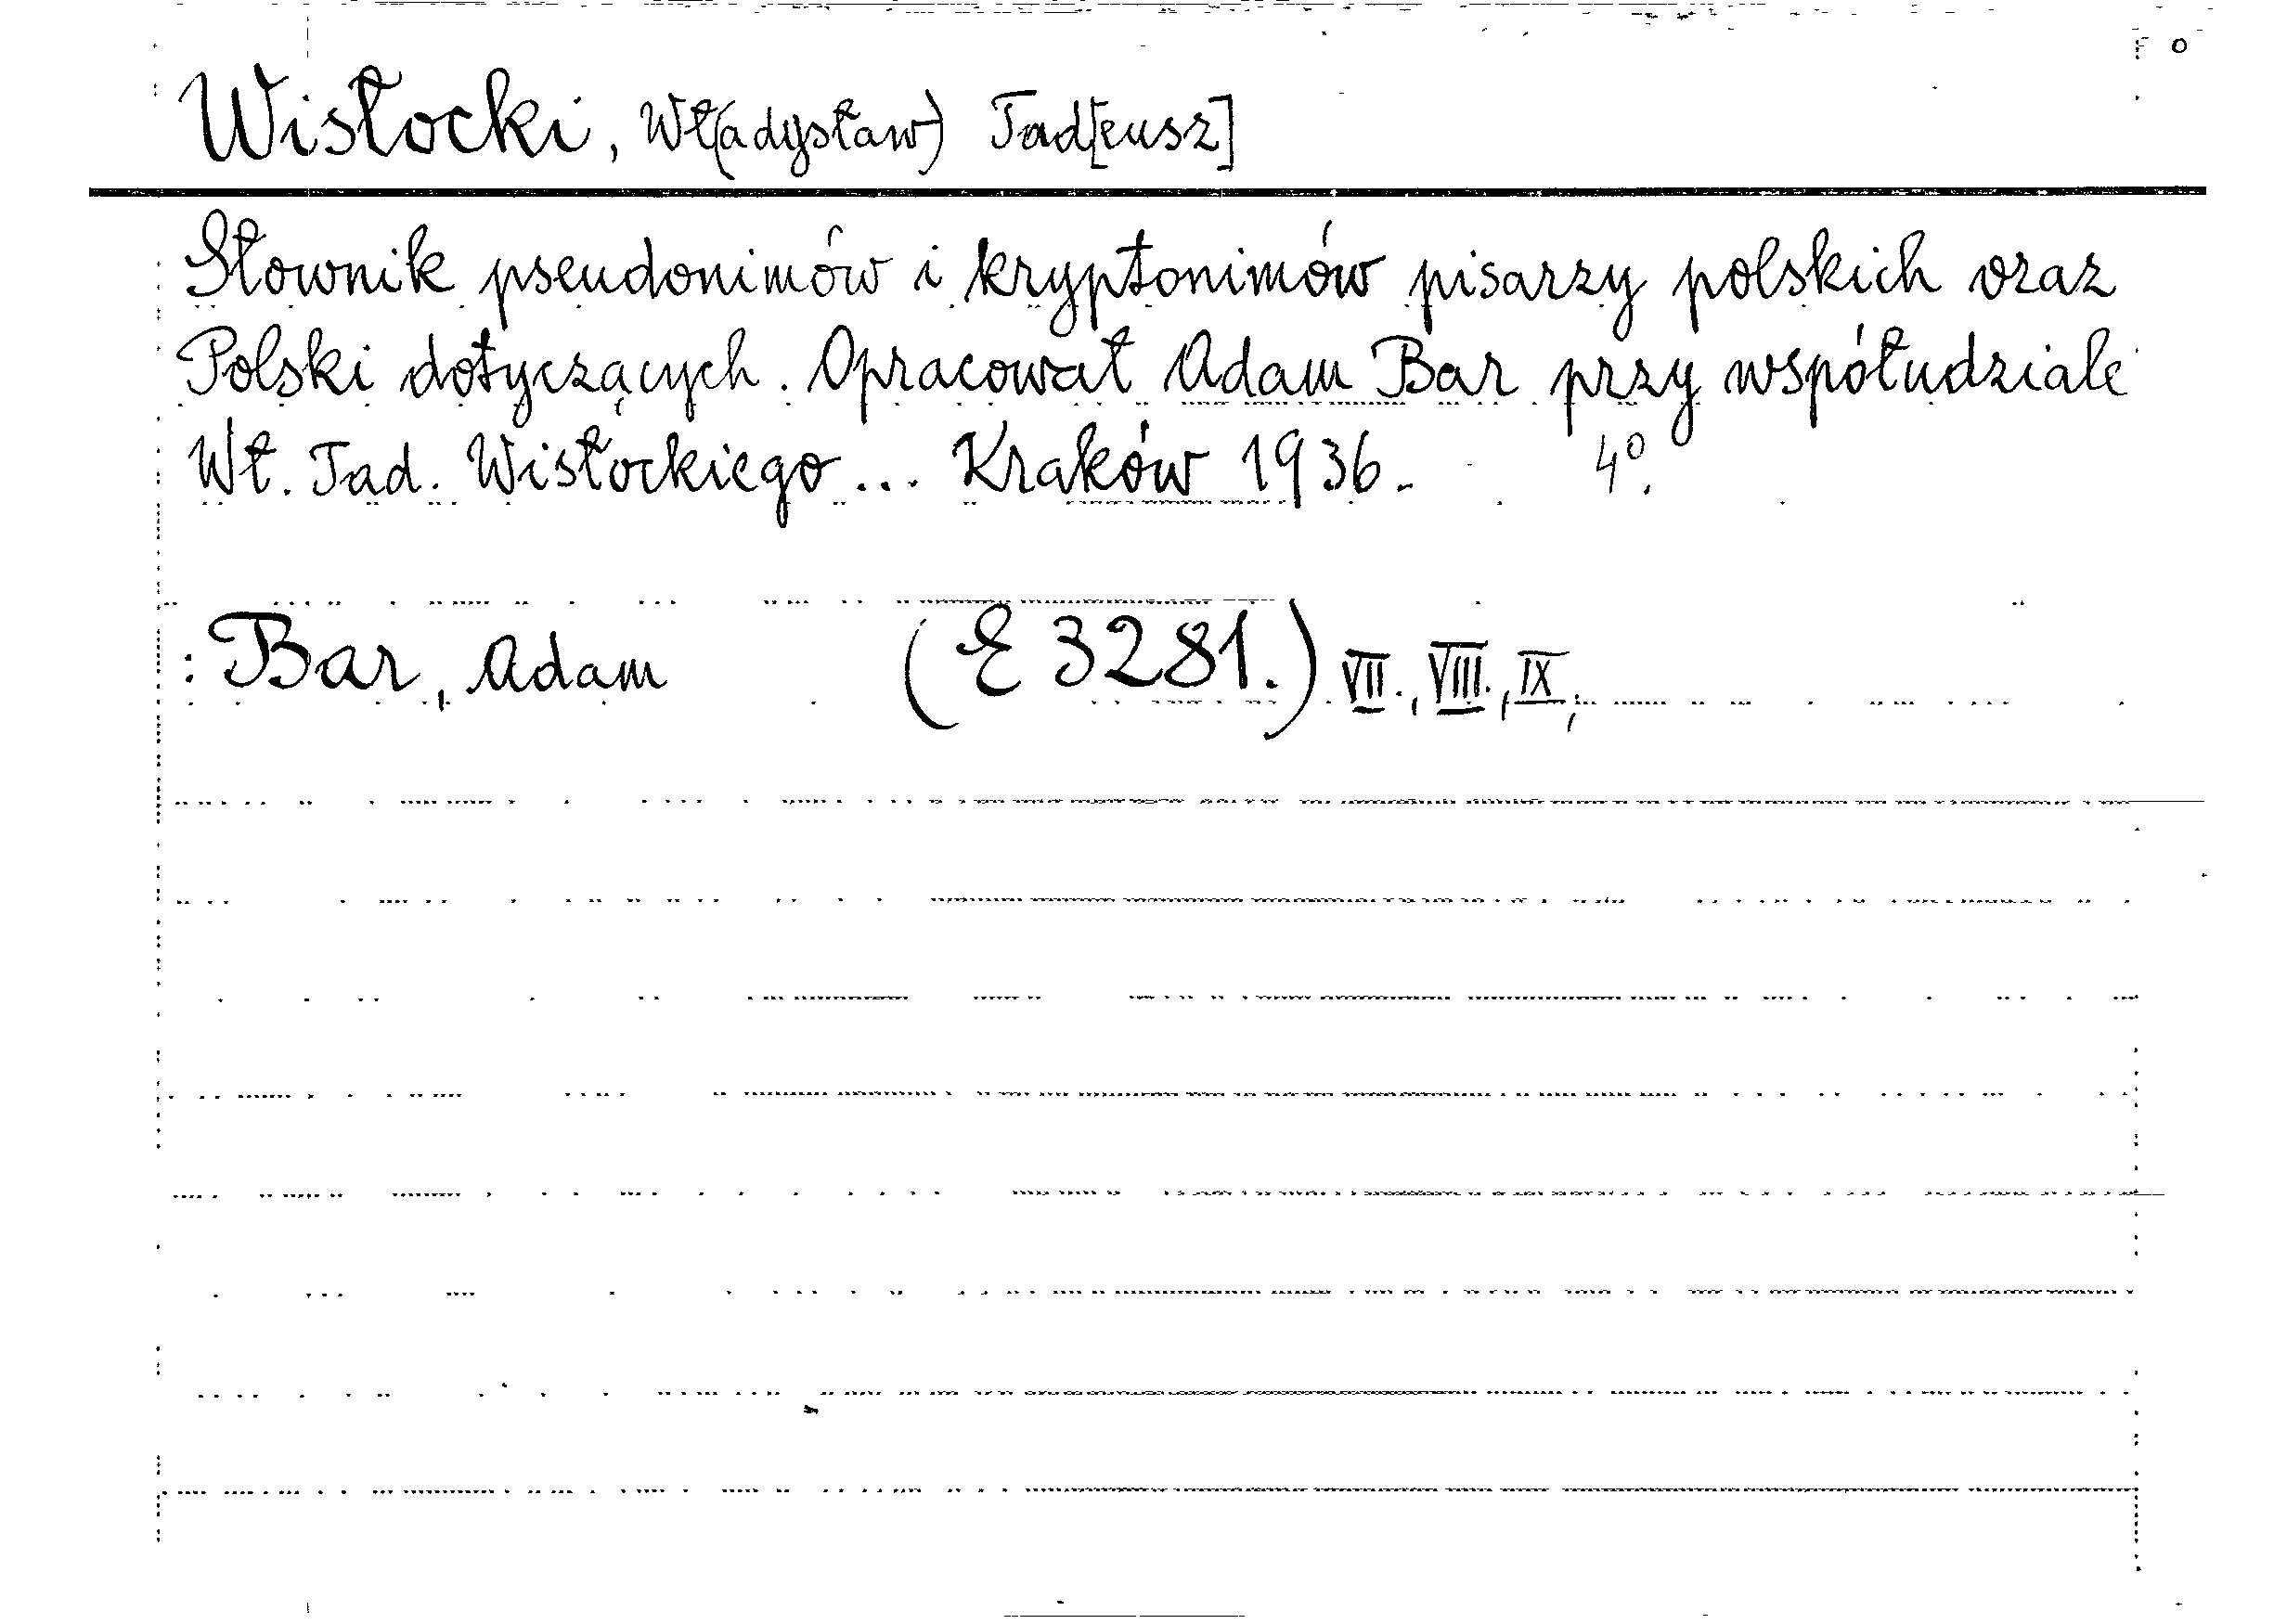 Wisłocki, Wł(adysław) Tad[eusz]
Słownik pseudonimów i kryptonimów pisarzy polskich oraz
Polski dotyczących. Opracował Adam Bar przy współudziale
Wł. Tad. Wisłockiego... Kraków 1936. 4º.
: Bar, Adam (E 3281.) VII., VIII., IX,